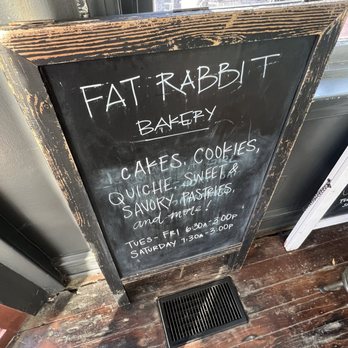 FAT RABBIT
BAKERY
CAKES, COOKIES,
QUICHE, SWEET &
SAVORY PASTRIES,
and more!
TUES-FRI 6:30A-3:00P
SATURDAY 7:30A-3:00P